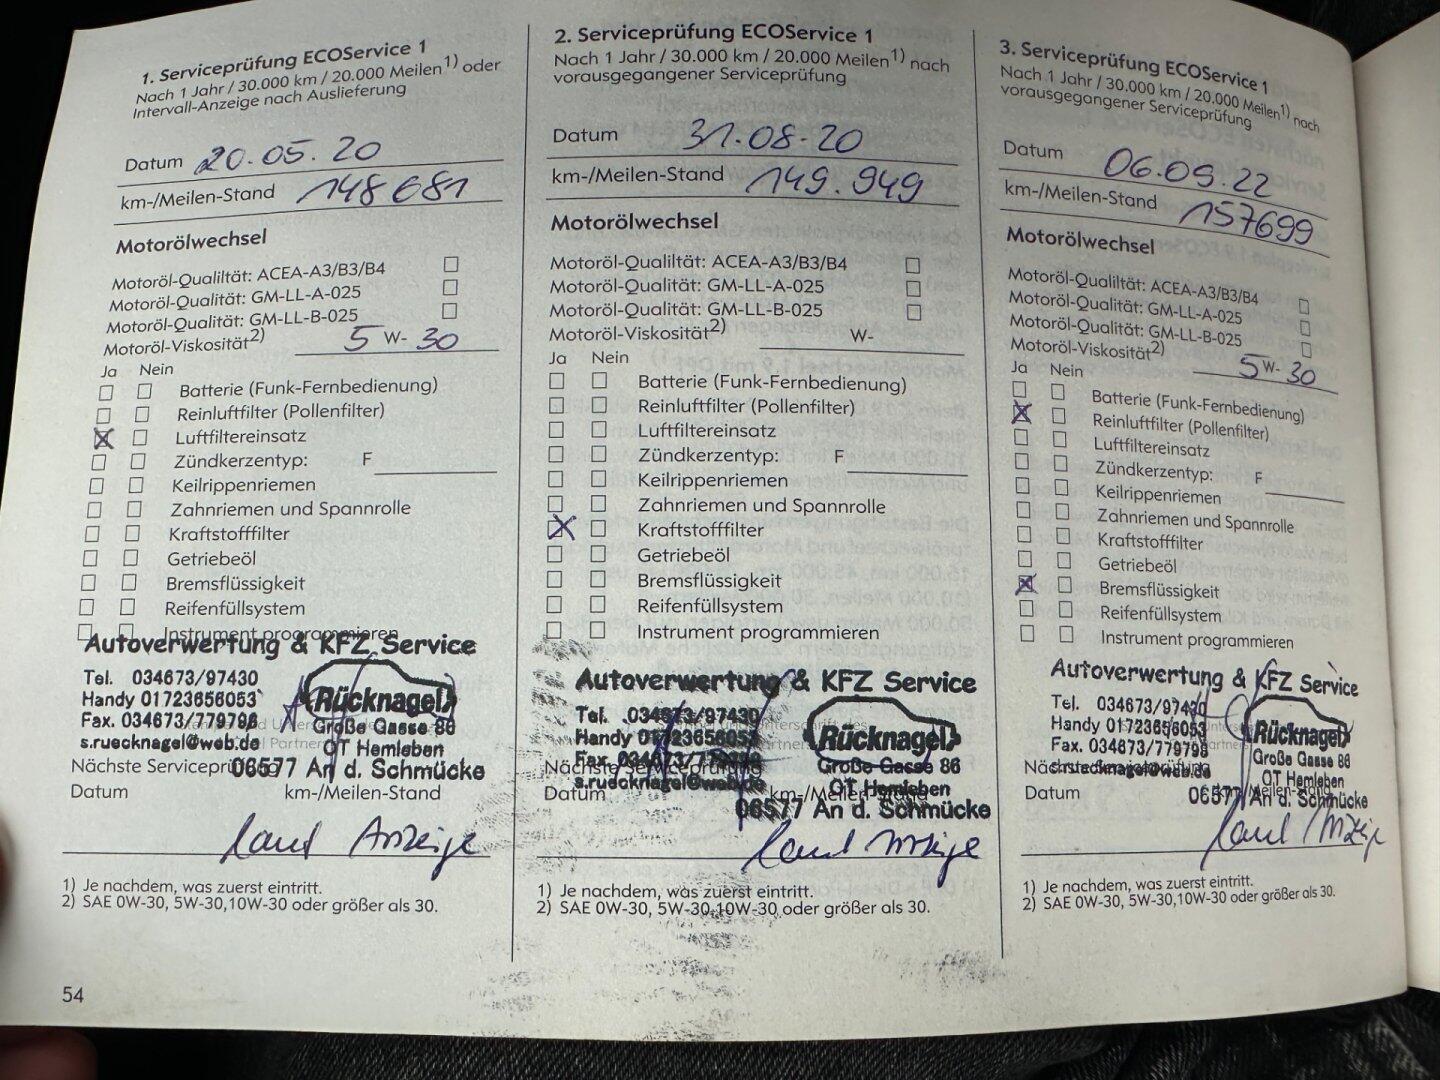 1. Serviceprüfung ECOService 1
Nach 1 Jahr / 30.000 km / 20.000 Meilen1) oder
Intervall-Anzeige nach Auslieferung
Datum 20.05.20
km-/Meilen-Stand 148681
Motorölwechsel
Motoröl-Qualiltät: ACEA-A3/B3/B4
Motoröl-Qualität: GM-LL-A-025
Motoröl-Qualität: GM-LL-B-025
Motoröl-Viskosität2) 5 W- 30
Ja Nein
Batterie (Funk-Fernbedienung)
Reinluftfilter (Pollenfilter)
Luftfiltereinsatz
Zündkerzentyp: F
Keilrippenriemen
Zahnriemen und Spannrolle
Kraftstofffilter
Getriebeöl
Bremsflüssigkeit
Reifenfüllsystem
Instrument programmieren
Autoverwertung & KFZ Service
Tel. 034673/97430
Handy 01723656053
Fax. 034673/779798
s.ruecknagel@web.de
Rücknagel
Große Gasse 86
OT Hemleben
06577 An d. Schmücke
Nächste Serviceprüfung
Datum km-/Meilen-Stand
laut Anzeige
1) Je nachdem, was zuerst eintritt.
2) SAE 0W-30, 5W-30,10W-30 oder größer als 30.
54
2. Serviceprüfung ECOService 1
Nach 1 Jahr / 30.000 km / 20.000 Meilen1) nach
vorausgegangener Serviceprüfung
Datum 31.08.20
km-/Meilen-Stand 149.949
Motorölwechsel
Motoröl-Qualiltät: ACEA-A3/B3/B4
Motoröl-Qualität: GM-LL-A-025
Motoröl-Qualität: GM-LL-B-025
Motoröl-Viskosität2) W-
Ja Nein
Batterie (Funk-Fernbedienung)
Reinluftfilter (Pollenfilter)
Luftfiltereinsatz
Zündkerzentyp: F
Keilrippenriemen
Zahnriemen und Spannrolle
Kraftstofffilter
Getriebeöl
Bremsflüssigkeit
Reifenfüllsystem
Instrument programmieren
Autoverwertung & KFZ Service
Tel. 034673/97430
Handy 01723656053
Fax. 034673/779798
s.ruecknagel@web.de
Rücknagel
Große Gasse 86
OT Hemleben
06577 An d. Schmücke
Nächste Serviceprüfung
Datum km-/Meilen-Stand
laut Anzeige
1) Je nachdem, was zuerst eintritt.
2) SAE 0W-30, 5W-30,10W-30 oder größer als 30.
3. Serviceprüfung ECOService 1
Nach 1 Jahr / 30.000 km / 20.000 Meilen1) nach
vorausgegangener Serviceprüfung
Datum 06.09.22
km-/Meilen-Stand 157699
Motorölwechsel
Motoröl-Qualiltät: ACEA-A3/B3/B4
Motoröl-Qualität: GM-LL-A-025
Motoröl-Qualität: GM-LL-B-025
Motoröl-Viskosität2) 5 W- 30
Ja Nein
Batterie (Funk-Fernbedienung)
Reinluftfilter (Pollenfilter)
Luftfiltereinsatz
Zündkerzentyp: F
Keilrippenriemen
Zahnriemen und Spannrolle
Kraftstofffilter
Getriebeöl
Bremsflüssigkeit
Reifenfüllsystem
Instrument programmieren
Autoverwertung & KFZ Service
Tel. 034673/97430
Handy 01723656053
Fax. 034673/779798
s.ruecknagel@web.de
Rücknagel
Große Gasse 86
OT Hemleben
06577 An d. Schmücke
Nächste Serviceprüfung
Datum km-/Meilen-Stand
laut Anzeige
1) Je nachdem, was zuerst eintritt.
2) SAE 0W-30, 5W-30,10W-30 oder größer als 30.